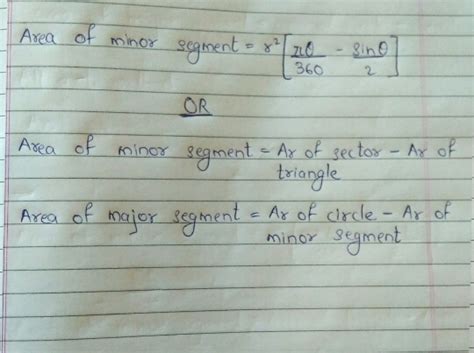 Area of minor segment = r² [πθ/360 - sinθ/2]
OR
Area of minor segment = Ar of sector - Ar of
triangle
Area of major segment = Ar of circle - Ar of
minor segment